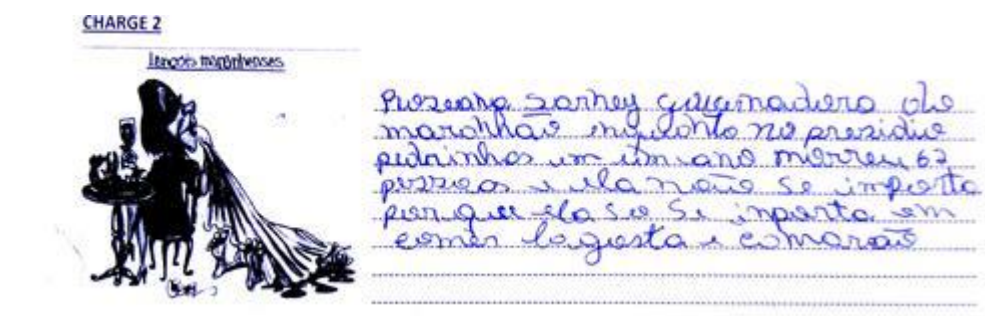 CHARGE 2
Lençóis maranhenses
Rozeana Sarney governadora do
maranhão enquanto no prezidio
pedrinhas um um ano morreu 62
pessoas e ela não se importa
por que ela so se inporta em
comer lagosta e camarão